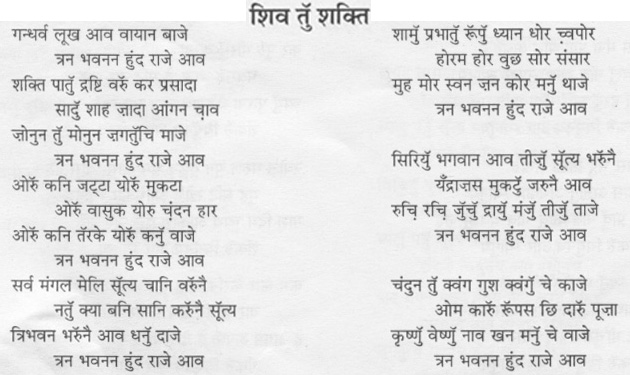 शिव तुॅ शक्ति
गन्धर्व लूख आव वायान बाजे
त्रन भवनन हुंद राजे आव
शक्ति पातुॅ द्रष्टि वरुॅ कर प्रसादा
सादुॅ शाह ज़ादा आंगन चाव
जोनुन तुॅ मोनुन ज़गतुॅचि माजे
त्रन भवनन हुंद राजे आव
ओरुॅ कनि जट्टा योरुॅ मुकटा
ओरुॅ वासुक योर चंदन हार
ओरुॅ कनि तॅरके योरुॅ कनुॅ वाजे
त्रन भवनन हुंद राजे आव
सर्व मंगल मेलि सूॅत्य चानि वरुॅनै
नतुॅ क्या बनि सानि करुॅनै सूॅत्य
त्रिभवन भरुॅनै आव धनुॅ दाजे
त्रन भवनन हुंद राजे आव
शामुॅ प्रभातुॅ रूॅपुॅ ध्यान धोर च़्वपोर
होरम होर वुछ सोर संसार
मुह मोर स्वन ज़न कोर मनुॅ थाजे
त्रन भवनन हुंद राजे आव
सिरियुॅ भगवान आव तीजुॅ सूॅत्य भरुॅनै
यॅंद्राज़स मुकटुॅ जरुनै आव
रुचि़ रचि़ जुॅचुॅ द्रायुॅ मंजुॅ तीजुॅ ताजे
त्रन भवनन हुंद राजे आव
चंदुन तुॅ क्वंग गुश क्वंगुॅ चे काजे
ओम कारुॅ रूॅपस छि दारुॅ पूजा
कृष्णुॅ वेष्णुॅ नाव खन मनुॅ चे वाजे
त्रन भवनन हुंद राजे आव